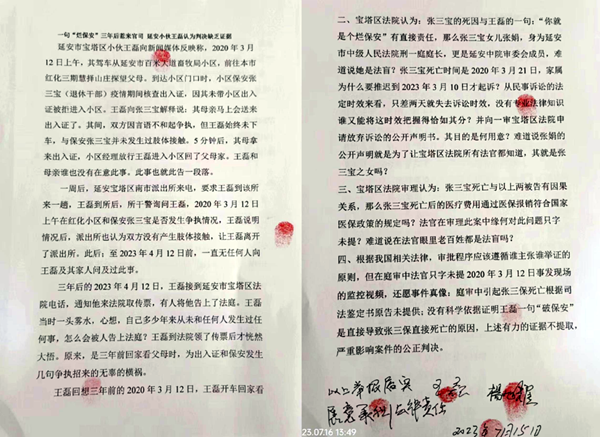 一句“烂保安”三年后惹来官司 延安小伙王磊认为判决缺乏证据
延安市宝塔区小伙王磊向新闻媒体反映称,2020 年 3 月
12 日上午,其驾车从延安市百米大道畜牧局小区,前往本市
红化三期慧择山庄探望父母。到达小区门口时,小区保安张
三宝(退休干部)疫情期间核查出入证,因其未带小区出入
证被拒进入小区。王磊向张三宝解释说,其母亲马上会送来
出入证了。其间,双方因言语不和起争执,但王磊始终未下
车,与保安张三宝并未发生过肢体接触。5 分钟后,其母拿
来出入证,小区经理放行王磊进入小区回了父母家。王磊和
母亲谁也没有在意此事。此事也就此告一段落。
一周后,延安宝塔区南市派出所来电,要求王磊到该所
来一趟,王磊到所后,所干警询问王磊,2020 年 3 月 12 日
上午在红化小区和保安张三宝是否发生争执情况,王磊说明
情况后,派出所也认为双方没有产生肢体接触,让王磊离开
了派出所,此后:至 2023 年 4 月 12 日前,一直无任何人向
王磊及其家人问及过此事。
三年后的 2023 年 4 月 12 日,王磊接到延安市宝塔区法
院电话,通知他来法院取传票,有人将他告上了法庭。王磊
当时一头雾水,心想,自己多少年来从未和任何人发生过任
何事,怎么会被人告上法庭?王磊到法院领了传票后才恍然
大悟。原来,是三年前回家看父母时,为出入证和保安发生
几句争执招来的无辜的横祸。
王磊回想三年前的 2020 年 3 月 12 日,王磊开车回家看
二、宝塔区法院认为:张三宝的死因与王磊的一句:“你就
是个烂保安”有直接责任,那么张三宝女儿张娟,身为延安
市中级人民法院刑一庭庭长,更是延安中院审委会成员,难
道说她是法盲?张三宝死亡时间是 2020 年 3 月 21 日,家属
为什么要推迟到 2023 年 3 月 10 日才起诉?从民事诉讼的法
定时效来看,只差两天就失去诉讼时效,没有专业法律知识
谁又能将这时效把握得恰如其分?并向一审宝塔区法院申
请放弃诉讼的公开声明书。其目的是何用意?难道说张娟的
公开声明就是为了让宝塔区法院所有法官都知道,其就是张
三宝之女吗?
三、宝塔区法院审理认为:张三宝死亡与以上两被告有因果
关系,那么张三宝死亡后的医疗费用通过医保报销符合国家
医保政策的规定吗?法官在审理此案中缘何对此问题只字
未提?难道说在法官眼里老百姓都是法盲吗?
四、根据我国相关法律,审批程序应该遵循谁主张谁举证的
原则,但在庭审中法官只字未提 2020 年 3 月 12 日事发现场
的监控视频,还愿事件真像;庭审中引起张三保死亡根据司
法鉴定书原告未提供;没有科学依据证明王磊一句“破保安”
是直接导致张三保直接死亡的原因,上述有力的证据不提取,
严重影响案件的公正判决。
以上举报属实 王磊 杨
愿意承担法律责任
2023年7月15日
23.07.16 13:49